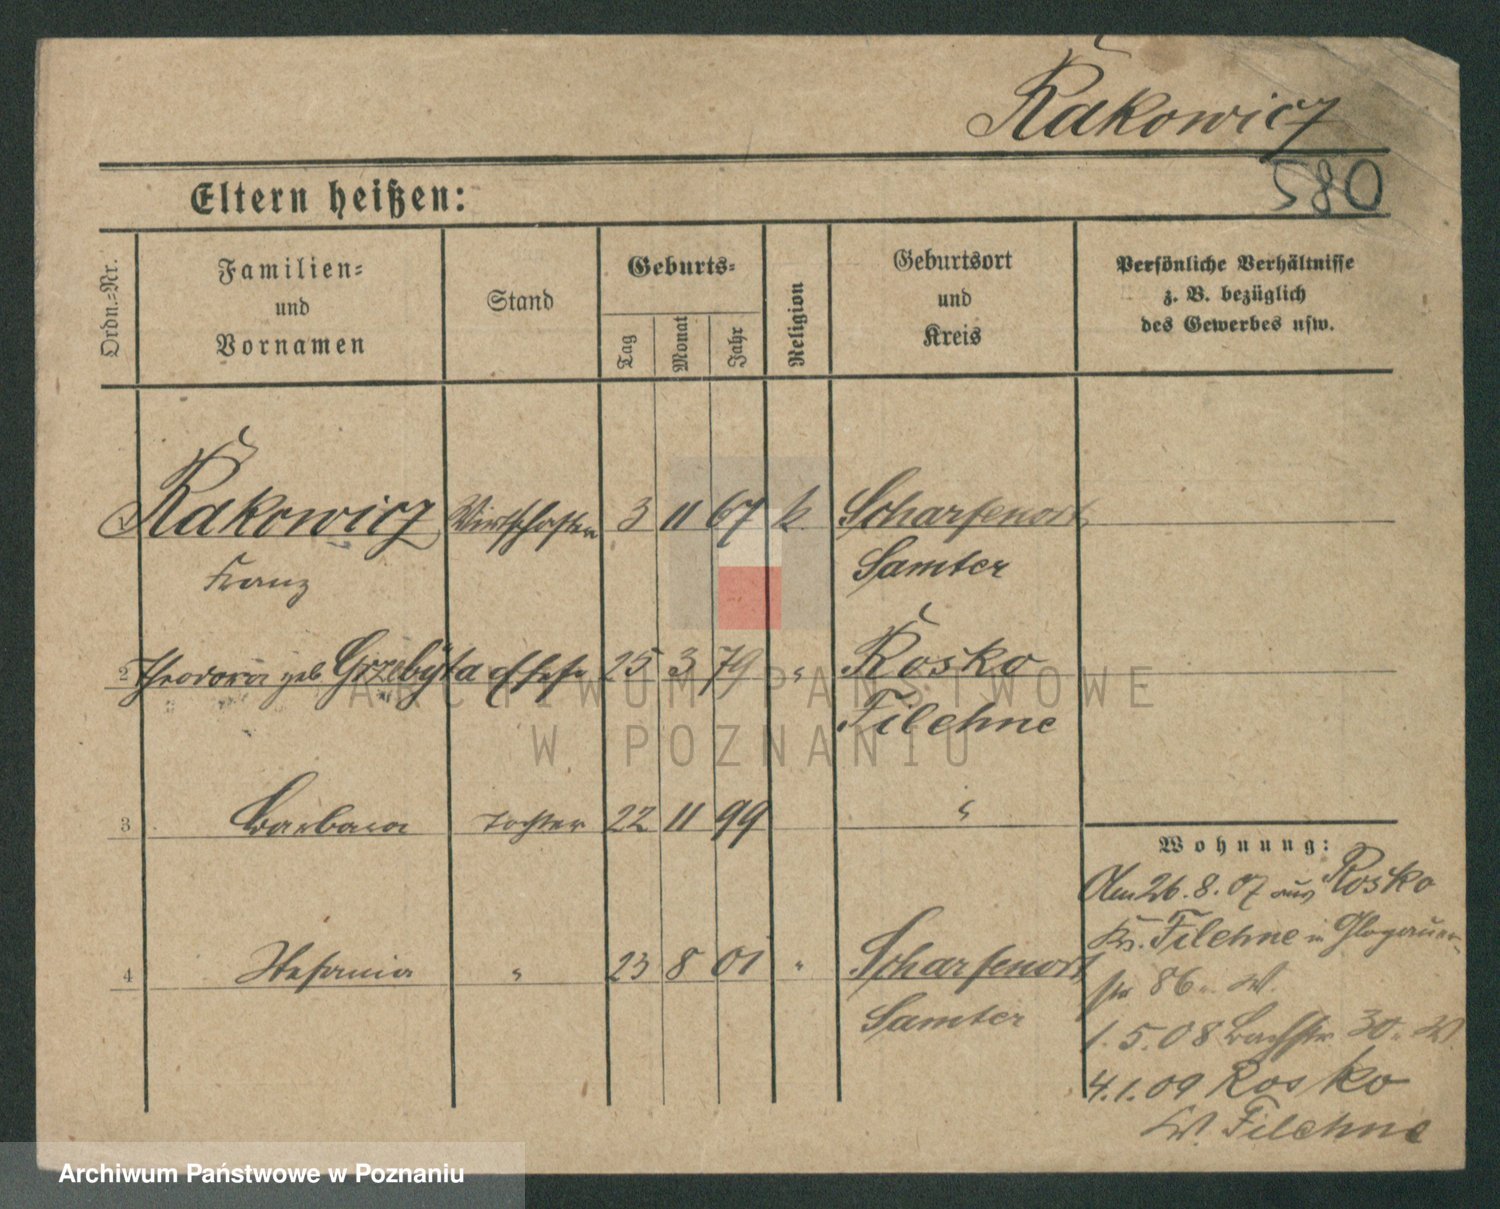 Rakowicz
580
Eltern heißen:
Ordn.-Nr.
Familien-
und
Vornamen
Stand
Geburts-
Tag
Monat
Jahr
Religion
Geburtsort
und
Kreis
Persönliche Verhältnisse
z. B. bezüglich
des Gewerbes usw.
1 Rakowicz 3 11 67 k. Scharfenort
Franz Samter
2 Theodora geb Grzebyta Ehefr 25 3 79 " Rosko
Filehne
3 Barbara Tochter 22 11 99 "
4 Stefania " 23 8 01 " Scharfenort
Samter
Wohnung:
Am 26.8.07 aus Rosko
Kr. Filehne in Glogauer-
str 86 W.
1.5.08 Bachstr 30 W.
4.1.09 Rosko
Kr. Filehne
ARCHIWUM PAŃSTWOWE
W POZNANIU
Archiwum Państwowe w Poznaniu